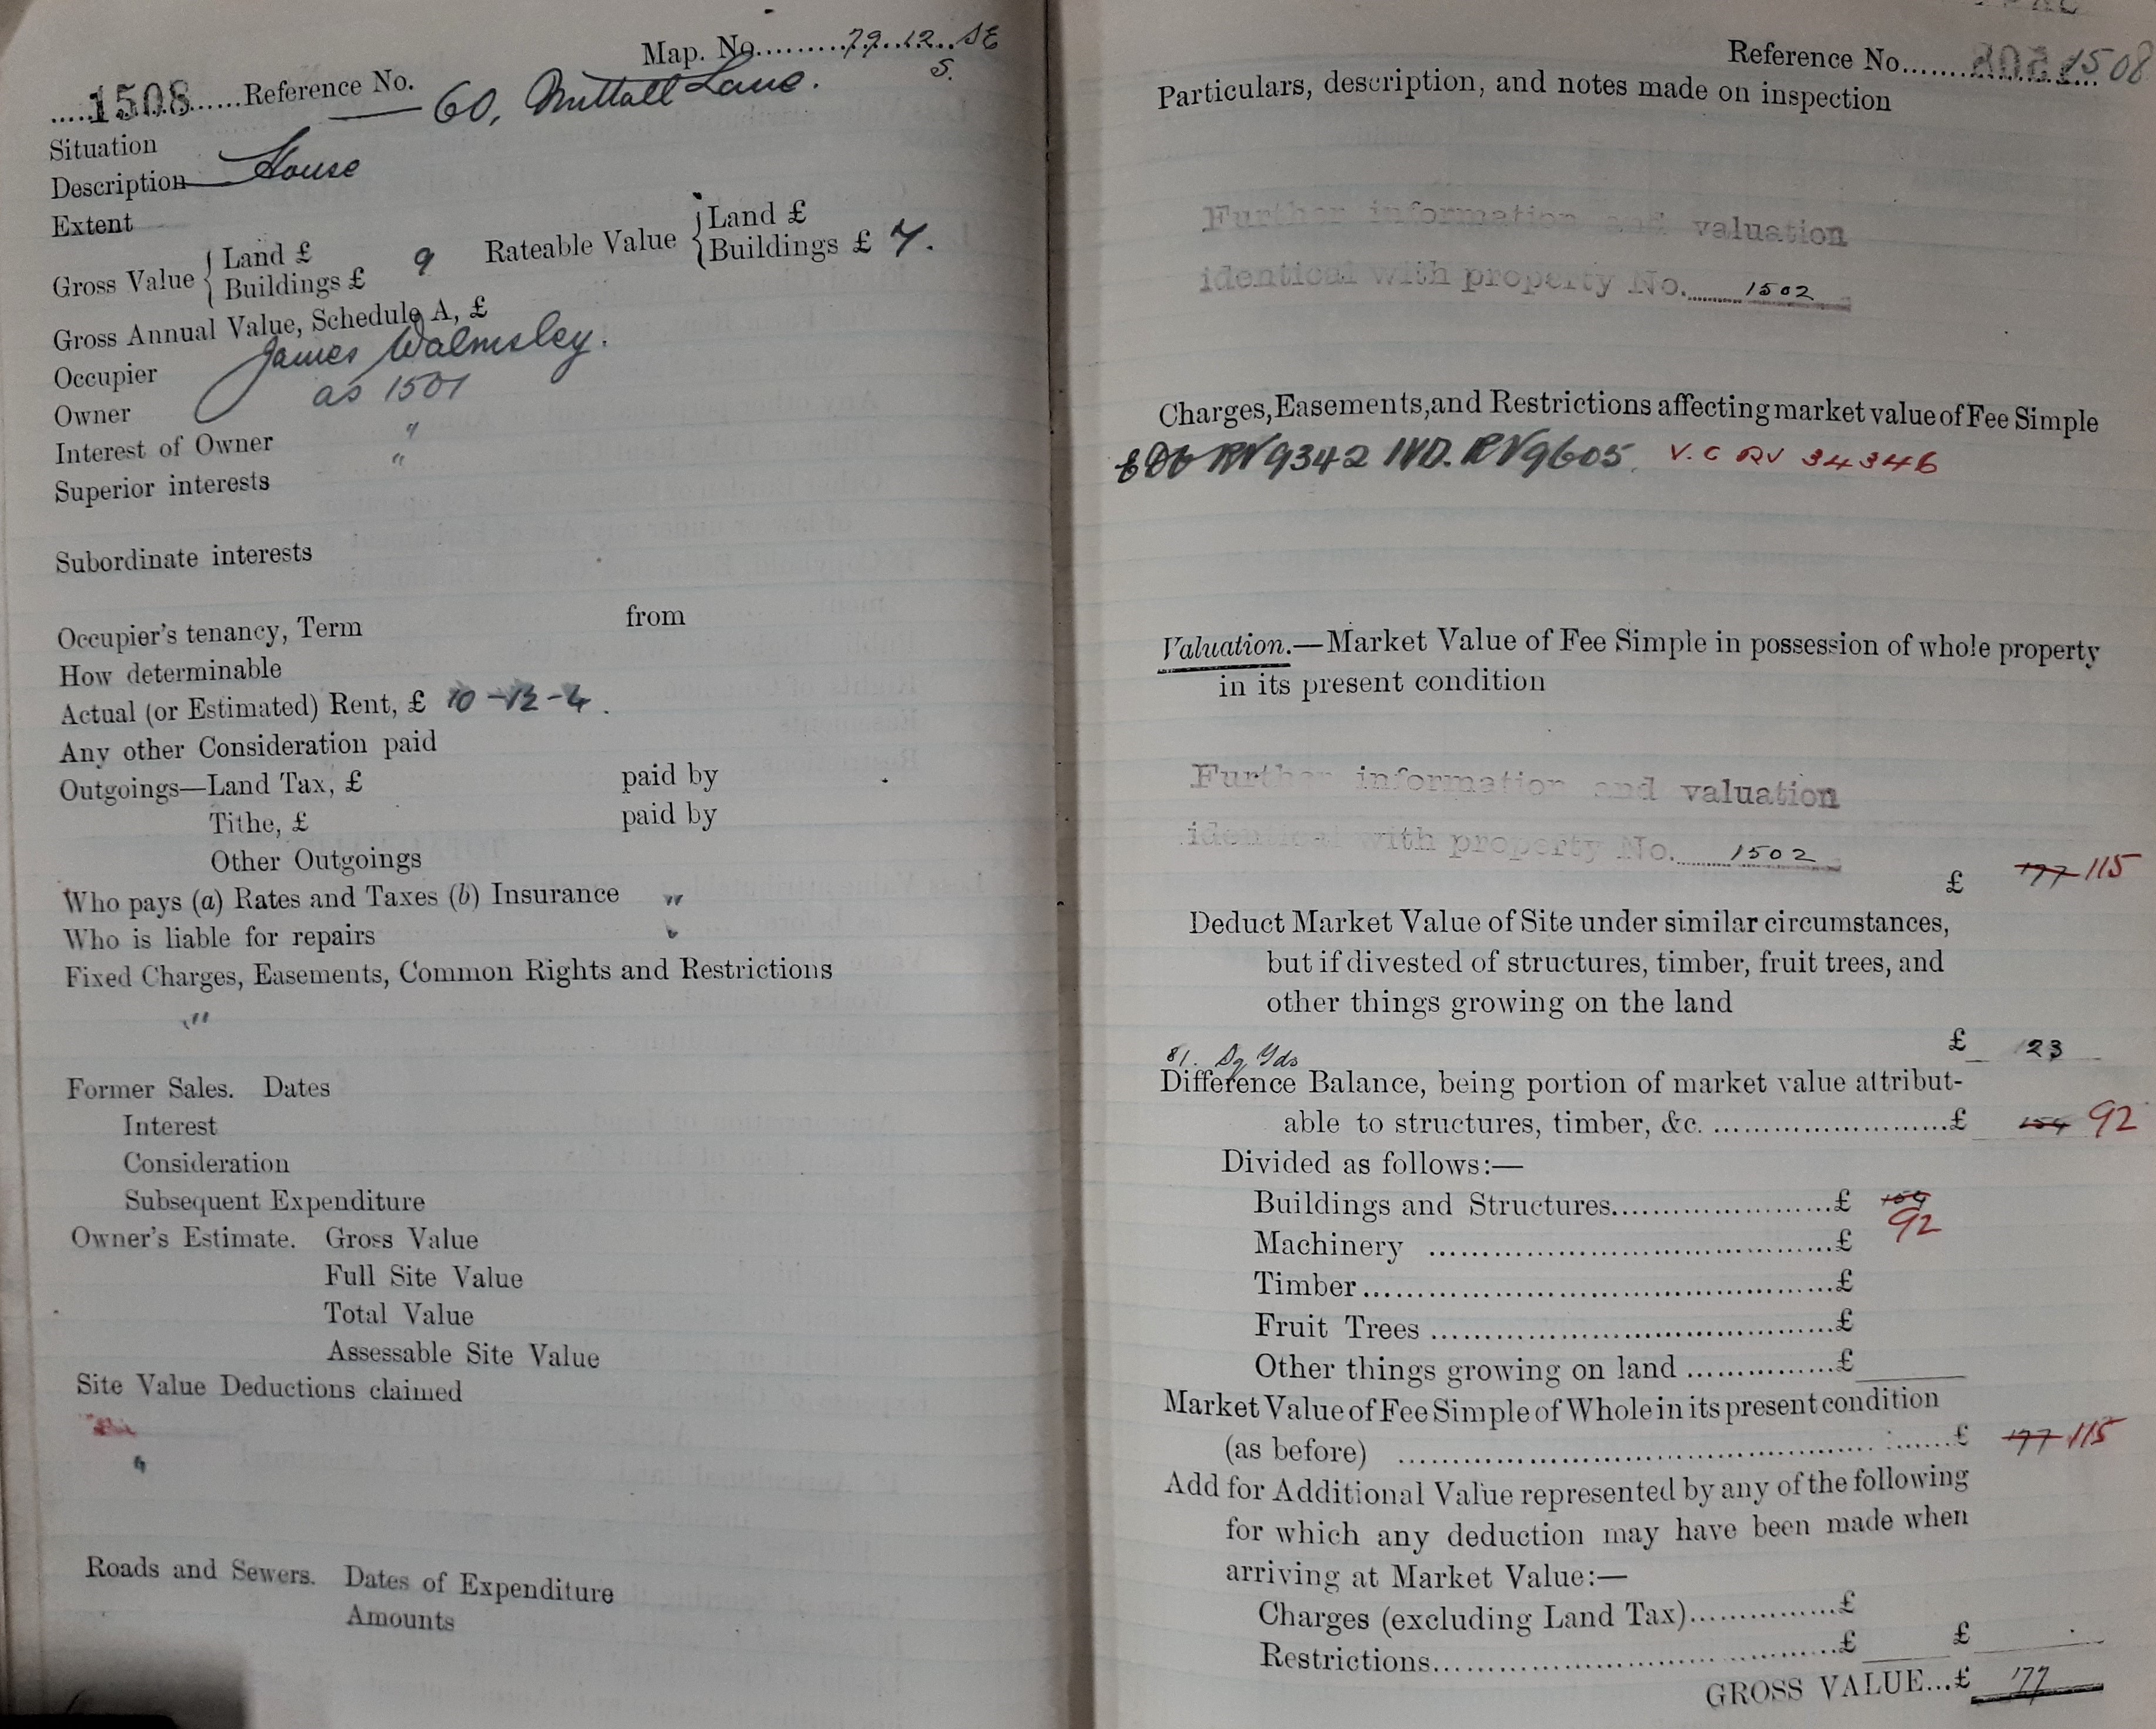 Map. No. 79.12. SE
S.
1508 Reference No.
Situation 60, Nuttall Lane.
Description House
Extent
Gross Value { Land £ Buildings £ 9 Rateable Value { Land £ Buildings £ 7.
Gross Annual Value, Schedule A, £
Occupier James Walmsley.
Owner as 1501
Interest of Owner "
Superior interests "
Subordinate interests
Occupier's tenancy, Term from
How determinable
Actual (or Estimated) Rent, £ 10-12-4.
Any other Consideration paid
Outgoings—Land Tax, £ paid by
Tithe, £ paid by
Other Outgoings
Who pays (a) Rates and Taxes (b) Insurance "
Who is liable for repairs "
Fixed Charges, Easements, Common Rights and Restrictions
"
Former Sales. Dates
Interest
Consideration
Subsequent Expenditure
Owner's Estimate. Gross Value
Full Site Value
Total Value
Assessable Site Value
Site Value Deductions claimed
"
Roads and Sewers. Dates of Expenditure
Amounts
Reference No. 1508
Particulars, description, and notes made on inspection
Further information and valuation
identical with property No. 1502
Charges, Easements, and Restrictions affecting market value of Fee Simple
RV 9342 IVD. RV 9605. V.C RV 34346
Valuation.—Market Value of Fee Simple in possession of whole property
in its present condition
Further information and valuation
identical with property No. 1502
£ 177 115
Deduct Market Value of Site under similar circumstances,
but if divested of structures, timber, fruit trees, and
other things growing on the land
£ 23
81. Sq Yds
Difference Balance, being portion of market value attribut-
able to structures, timber, &c. £ 154 92
Divided as follows:—
Buildings and Structures £ 154
92
Machinery £
Timber £
Fruit Trees £
Other things growing on land £
Market Value of Fee Simple of Whole in its present condition
(as before) £ 177 115
Add for Additional Value represented by any of the following
for which any deduction may have been made when
arriving at Market Value:—
Charges (excluding Land Tax) £
Restrictions £ £
GROSS VALUE...£ 177